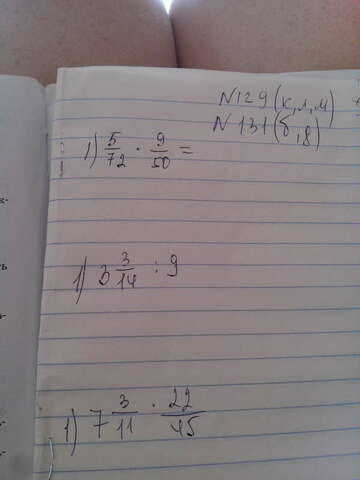 N129 (к, л, м)
N 131 (б, д)
1) 5/72 · 9/50 =
1) 3 3/14 : 9
1) 7 3/11 · 22/45